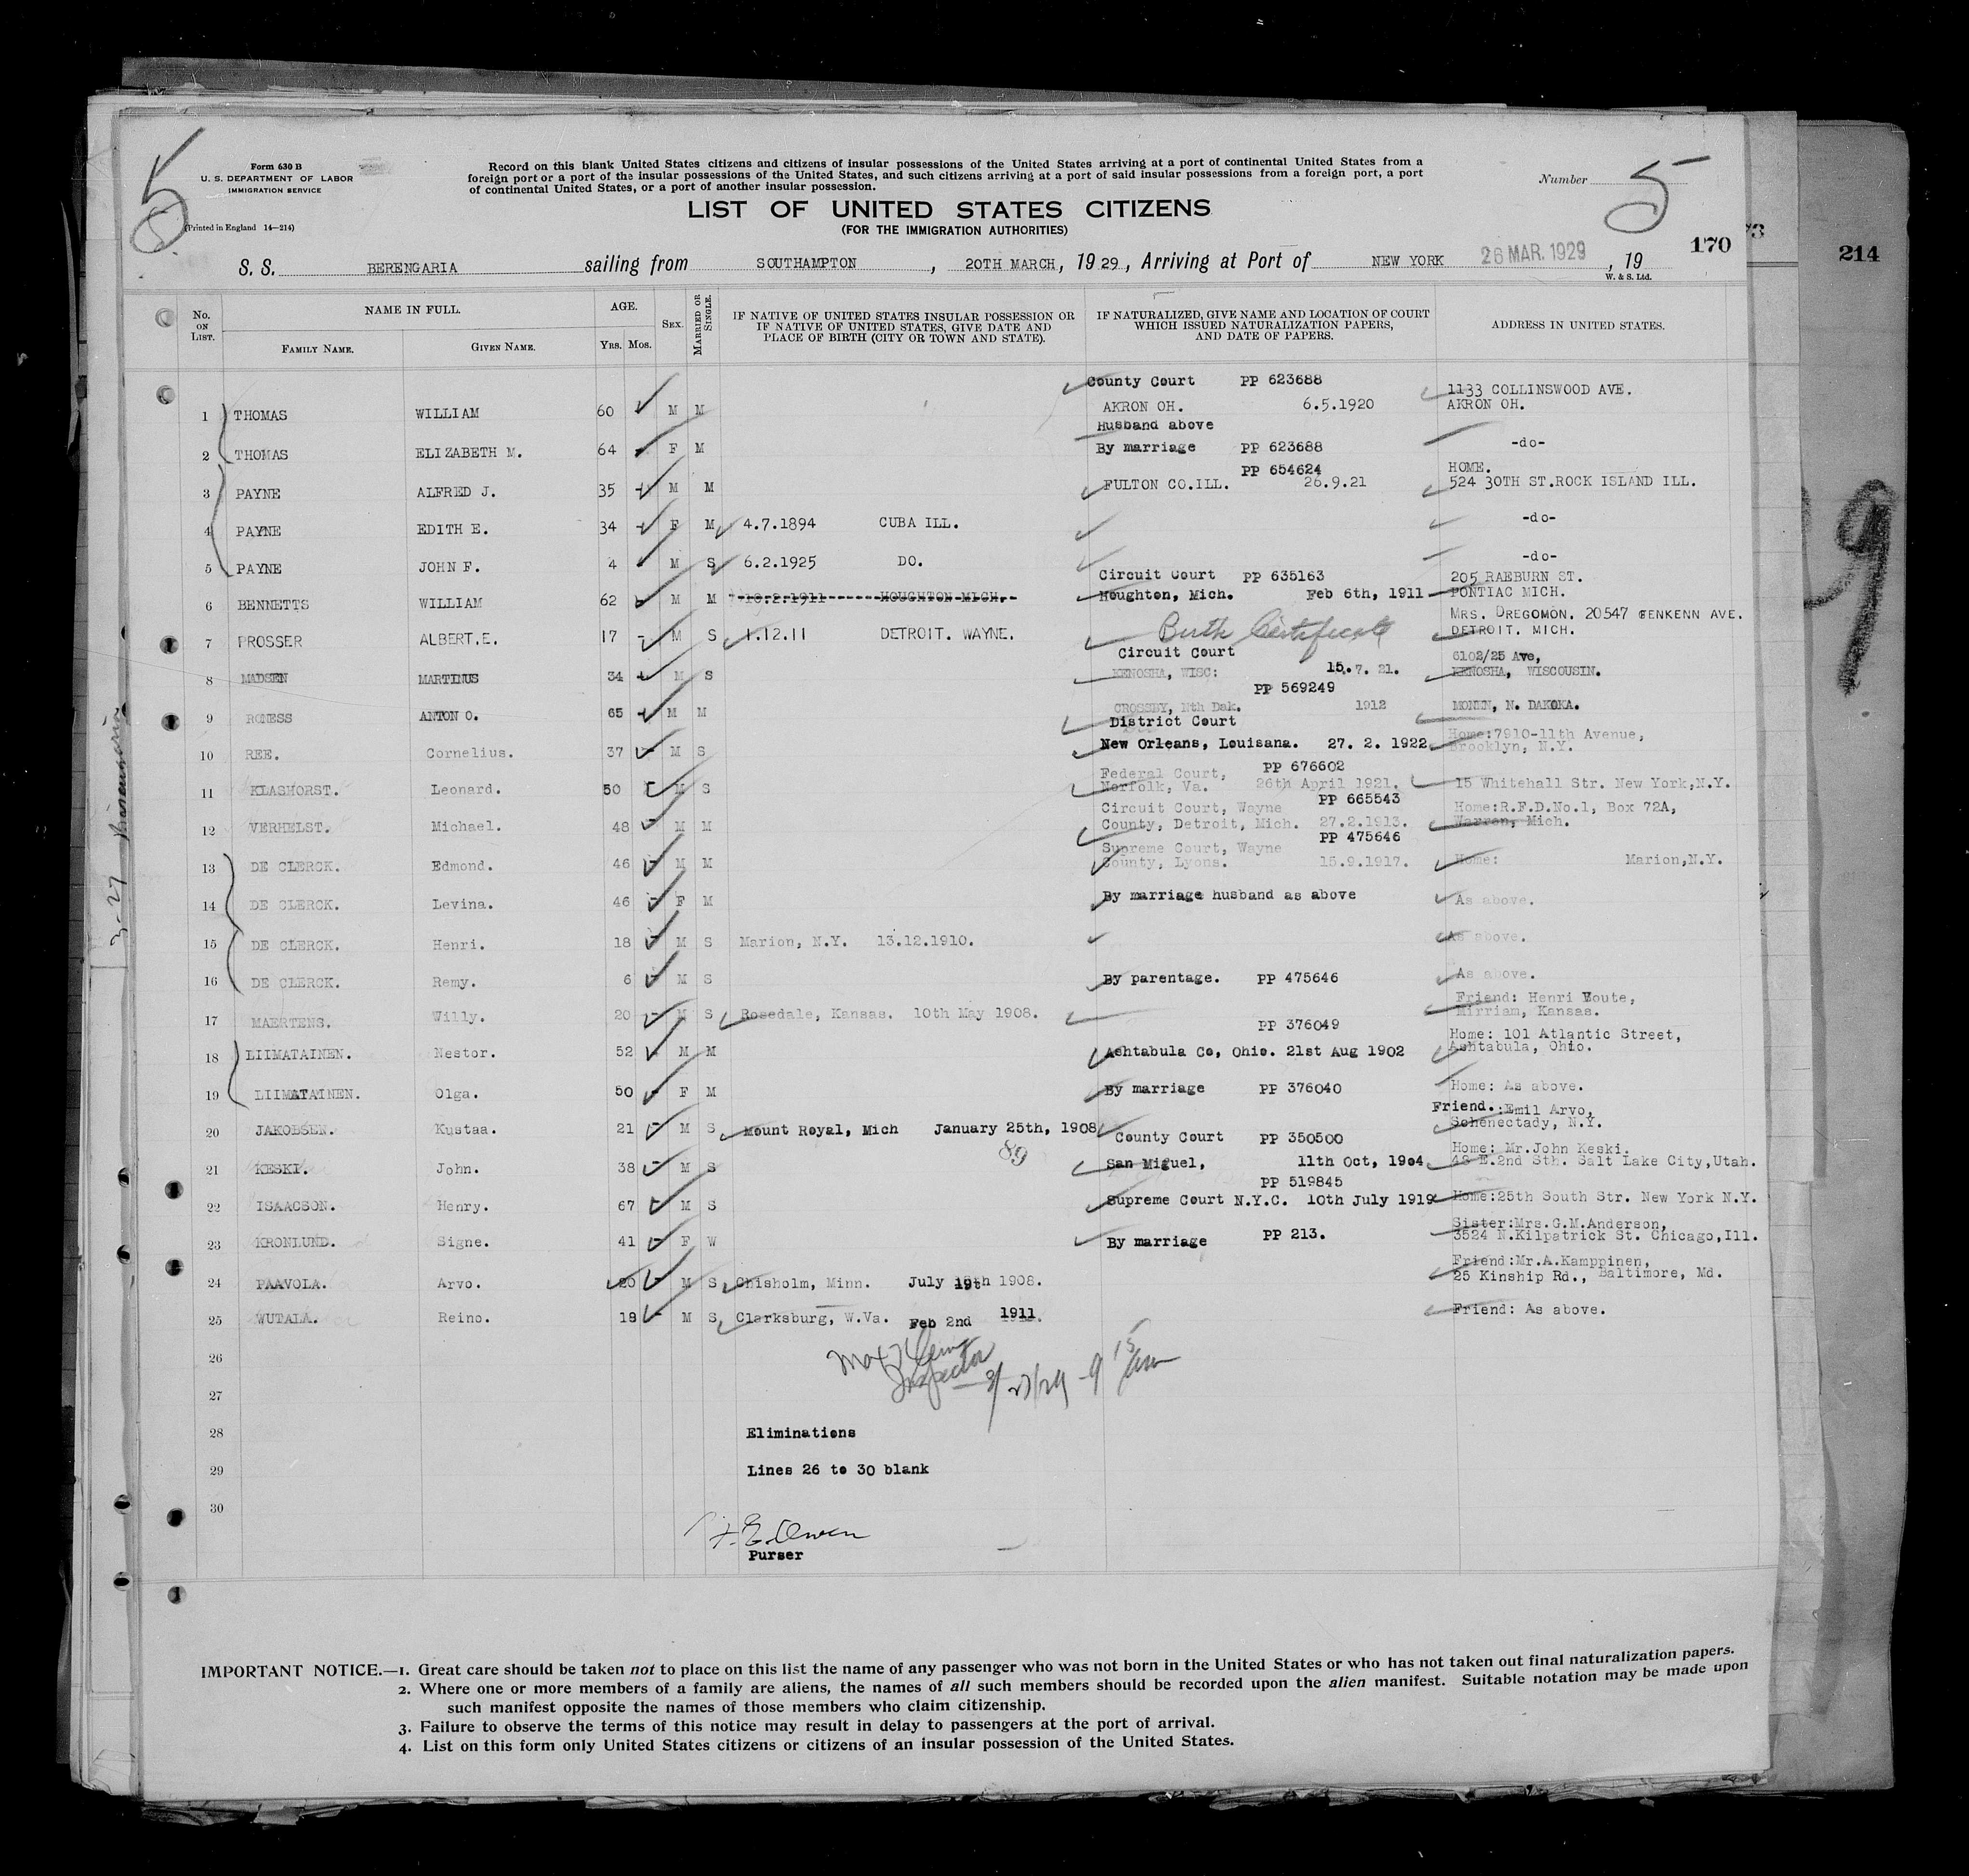 5
Form 630 B
U. S. DEPARTMENT OF LABOR
IMMIGRATION SERVICE
(Printed in England 14—214)
Record on this blank United States citizens and citizens of insular possessions of the United States arriving at a port of continental United States from a
foreign port or a port of the insular possessions of the United States, and such citizens arriving at a port of said insular possessions from a foreign port, a port
of continental United States, or a port of another insular possession.
Number 5
LIST OF UNITED STATES CITIZENS
(FOR THE IMMIGRATION AUTHORITIES)
170
214
S. S. BERENGARIA sailing from SOUTHAMPTON, 20TH MARCH, 1929, Arriving at Port of NEW YORK 26 MAR. 1929, 19
W. & S. Ltd.
No. ON LIST.
NAME IN FULL.
FAMILY NAME. GIVEN NAME.
AGE.
YRS. MOS.
SEX.
MARRIED OR SINGLE.
IF NATIVE OF UNITED STATES INSULAR POSSESSION OR
IF NATIVE OF UNITED STATES, GIVE DATE AND
PLACE OF BIRTH (CITY OR TOWN AND STATE).
IF NATURALIZED, GIVE NAME AND LOCATION OF COURT
WHICH ISSUED NATURALIZATION PAPERS,
AND DATE OF PAPERS.
ADDRESS IN UNITED STATES.
County Court PP 623688 1133 COLLINSWOOD AVE.
1 THOMAS WILLIAM 60 M M AKRON OH. 6.5.1920 AKRON OH.
Husband above
2 THOMAS ELIZABETH M. 64 F M By marriage PP 623688 -do-
PP 654624 HOME.
3 PAYNE ALFRED J. 35 M M FULTON CO.ILL. 26.9.21 524 30TH ST.ROCK ISLAND ILL.
4 PAYNE EDITH E. 34 F M 4.7.1894 CUBA ILL. -do-
5 PAYNE JOHN F. 4 M S 6.2.1925 DO. -do-
Circuit Court PP 635163 205 RAEBURN ST.
6 BENNETTS WILLIAM 62 M M 10.2.1911 HOUGHTON MICH. Houghton, Mich. Feb 6th, 1911 PONTIAC MICH.
MRS. OREGOMON. 20547 GENKENN AVE.
7 PROSSER ALBERT.E. 17 M S 1.12.11 DETROIT. WAYNE. Birth Certificate DETROIT. MICH.
Circuit Court 6102/25 Ave,
8 MADSEN MARTINUS 34 M S KENOSHA, WISC: 15.7. 21. KENOSHA, WISCOUSIN.
PP 569249
9 RONESS ANTON O. 65 M M CROSSBY, Nth Dak. 1912 MONEN, N. DAKOKA.
District Court
Home:7910-11th Avenue,
10 REE. Cornelius. 37 M S New Orleans, Louisana. 27. 2. 1922 Brooklyn, N.Y.
Federal Court, PP 676602
11 KLASHORST. Leonard. 50 M S Norfolk, Va. 26th April 1921. 15 Whitehall Str. New York,N.Y.
PP 665543
Circuit Court, Wayne Home:R.F.D.No.1, Box 72A,
12 VERHELST. Michael. 48 M M County, Detroit, Mich. 27.2.1913. Warren, Mich.
PP 475646
Supreme Court, Wayne
13 DE CLERCK. Edmond. 46 M M County, Lyons. 15.9.1917. Home: Marion,N.Y.
14 DE CLERCK. Levina. 46 F M By marriage husband as above As above.
15 DE CLERCK. Henri. 18 M S Marion, N.Y. 13.12.1910. As above.
16 DE CLERCK. Remy. 6 M S By parentage. PP 475646 As above.
Friend: Henri Houte,
17 MAERTENS. Willy. 20 M S Rosedale, Kansas. 10th May 1908. Mirriam, Kansas.
PP 376049 Home: 101 Atlantic Street,
18 LIIMATAINEN. Nestor. 52 M M Ashtabula Co, Ohio. 21st Aug 1902 Ashtabula, Ohio.
19 LIIMATAINEN. Olga. 50 F M By marriage PP 376040 Home: As above.
Friend.:Emil Arvo,
20 JAKOBSEN. Kustaa. 21 M S Mount Royal, Mich January 25th, 1908 Schenectady, N.Y.
89
County Court PP 350500 Home: Mr.John Keski.
21 KESKI. John. 38 M S San Miguel, 11th Oct, 1904. 48 E.2nd Sth. Salt Lake City,Utah.
PP 519845
22 ISAACSON. Henry. 67 M S Supreme Court N.Y.C. 10th July 1919 Home:25th South Str. New York N.Y.
Sister:Mrs.G.M.Anderson,
23 KRONLUND. Signe. 41 F W By marriage PP 213. 3524 N.Kilpatrick St. Chicago,Ill.
Friend:Mr.A.Kamppinen,
24 PAAVOLA. Arvo. 20 M S Chisholm, Minn. July 19th 1908. 25 Kinship Rd., Baltimore, Md.
25 WUTALA. Reino. 18 M S Clarksburg, W.Va. Feb 2nd 1911 Friend: As above.
26
Inspector
3/27/29 - 9 15 am
27
28 Eliminations
29 Lines 26 to 30 blank
30
F. E. Owen
Purser
3-27 Berengaria
9
IMPORTANT NOTICE.—1. Great care should be taken not to place on this list the name of any passenger who was not born in the United States or who has not taken out final naturalization papers.
2. Where one or more members of a family are aliens, the names of all such members should be recorded upon the alien manifest. Suitable notation may be made upon
such manifest opposite the names of those members who claim citizenship.
3. Failure to observe the terms of this notice may result in delay to passengers at the port of arrival.
4. List on this form only United States citizens or citizens of an insular possession of the United States.